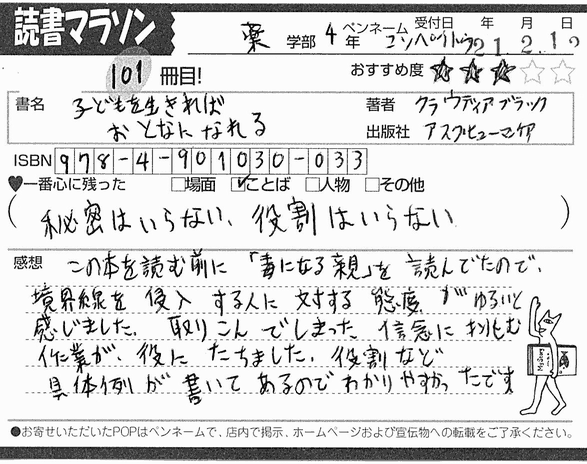 読書マラソン
薬 学部 4 年 ペンネーム コンペイトウ 受付日 21年 2.月 12日
101 冊目! おすすめ度 ★★★☆☆
書名 子どもを生きれば
おとなになれる
著者 クラウディアブラック
出版社 アスクヒューマンケア
ISBN 978-4-901030-033
♥一番心に残った □場面 ☑ことば □人物 □その他
(秘密はいらない、役割はいらない)
感想 この本を読む前に「毒になる親」を読んでたので、
境界線を侵入する人に対する態度がゆるいと
感じました。取りこんでしまった信念に挑む
作業が、役にたちました。役割など
具体例が書いてあるのでわかりやすかったです
●お寄せいただいたPOPはペンネームで、店内で掲示、ホームページおよび宣伝物への転載をご了承ください。